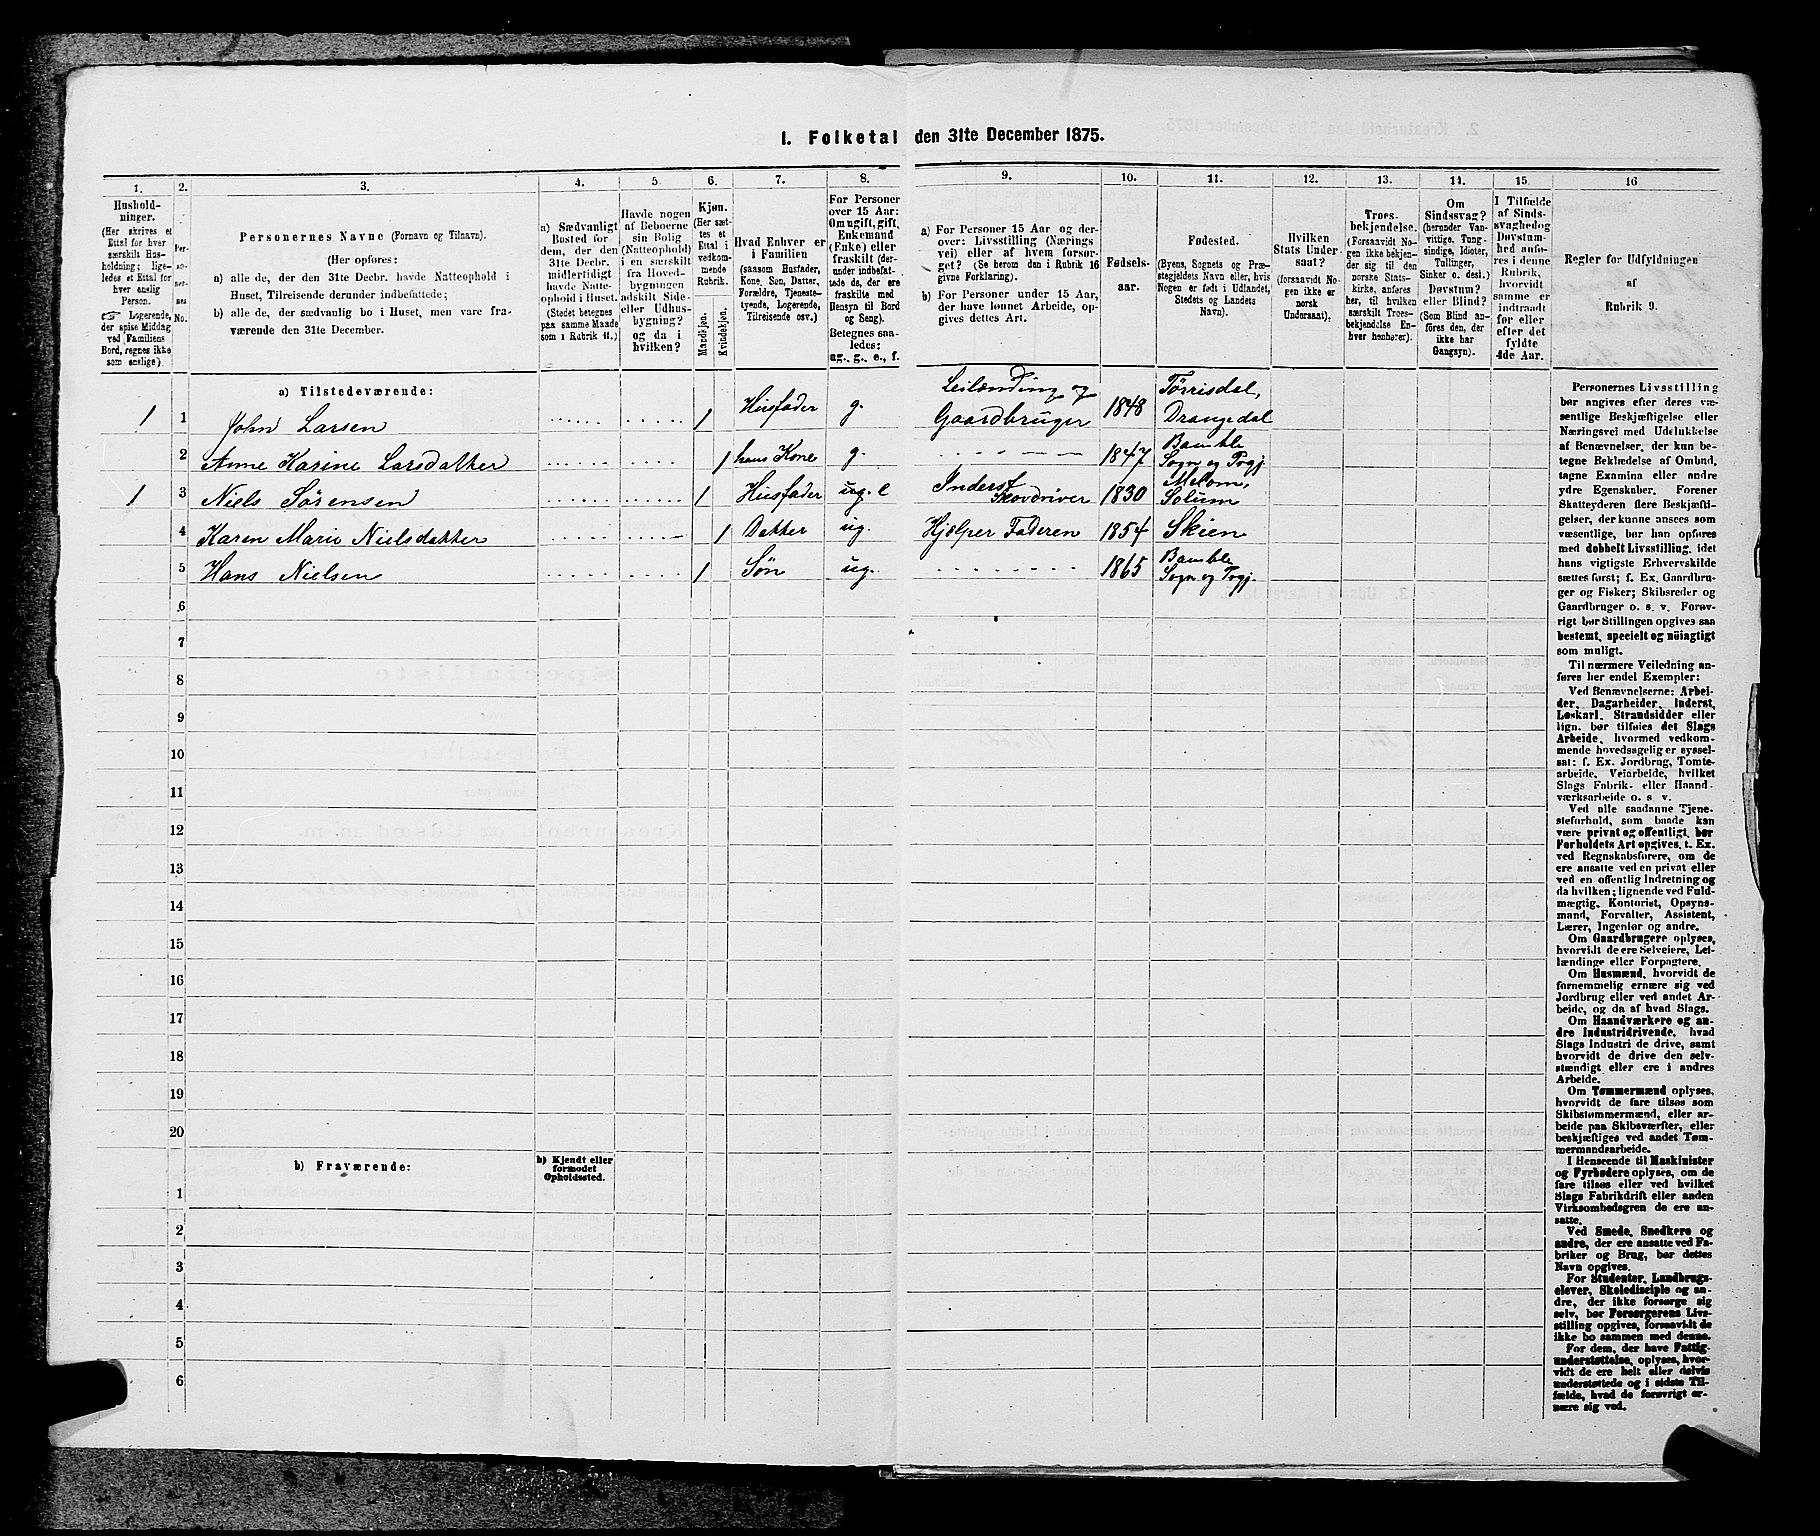 1. Folketal den 31te December 1875.
1.
2.
3.
4.
5.
6.
7.
8.
9.
10.
11.
12.
13.
14.
15
16
Hushold-
ninger.
(Her skrives et
Ettal for hver
særskilt Hus-
holdning; lige-
ledes et Ettal for
hver enslig
Person.
☞ Logerende,
der spise Middag
ved Familiens
Bord, regnes ikke
som enslige).
Per-
soner-
nes
No.
Personernes Navne (Fornavn og Tilnavn).
(Her opføres:
a) alle de, der den 31te Decbr. havde Natteophold i
Huset, Tilreisende derunder indbefattede;
b) alle de, der sædvanlig bo i Huset, men vare fra-
værende den 31te December.
a) Sædvanligt
Bosted for
dem, der den
31te Decbr.
midlertidigt
havde Natte-
ophold i Huset.
(Stedet betegnes
paa samme Maade
som i Rubrik 11.)
Havde nogen
af Beboerne
sin Bolig
(Natteophold)
i en særskilt
fra Hoved-
bygningen
adskilt Side-
eller Udhus-
bygning?
og da i
hvilken?
Kjøn.
(Her sæt-
tes et
Ettal i
vedkom-
mende
Rubrik.
Mandkjøn.
Kvindekjøn.
Hvad Enhver er
i Familien
(saasom Husfader,
Kone, Søn, Datter,
Forældre, Tjeneste-
tyende, Logerende,
Tilreisende osv.)
For Personer
over 15 Aar:
Om ugift, gift,
Enkemand
(Enke) eller
fraskilt (der-
under indbefat-
tede de, der ere
fraskilte med
Hensyn til Bord
og Seng).
Betegnes saa-
ledes:
ug., g., e., f.
a) For Personer 15 Aar og der-
over: Livsstilling (Nærings
vei) eller af hvem forsør-
get? (Se herom den i Rubrik 16
givne Forklaring).
b) For Personer under 15 Aar,
der have lønnet Arbeide, op-
gives dettes Art.
Fødsels-
aar.
Fødested.
(Byens, Sognets og Præ-
stegjeldets Navn eller, hvis
Nogen er født i Udlandet,
Stedets og Landets
Navn).
Hvilken
Stats Under-
saat?
(forsaavidt No-
gen ikke er
norsk
Undersaat).
Troes-
bekjendelse.
(Forsaavidt No-
gen ikke bekjen-
der sig til den
norske Stats-
kirke, anføres
her, til hvilken
særskilt Troes-
bekjendelse En-
hver henhører).
Om
Sindssvag?
(herunder Van-
vittige, Tung-
sindige, Idioter,
Tullinger,
Sinker o. desl.)
Døvstum?
eller Blind?
(Som Blind an-
føres den, der
ikke har
Gangsyn).
I Tilfælde
af Sinds-
svaghed og
Døvstum-
hed anfø-
res i denne
Rubrik,
hvorvidt
samme er
indtraadt
før eller
efter det
fyldte
4de Aar.
Regler for Udfyldningen
af
Rubrik 9.
a) Tilstedeværende:
1 1 John Larsen 1 Husfader g. Leilænding og Gaardbruger 1848 Tørrisdal, Drangedal
2 Anne Karine Larsdatter 1 hans Kone g. 1847 Bamble Sogn og Pogj
1 3 Niels Sørensen 1 Husfader ug. e Inderst Skovdriver 1830 Melom, Solum
4 Karen Marie Nielsdatter 1 Datter ug. Hjælper Faderen 1854 Skien
5 Hans Nielsen 1 Søn ug. 1865 Bamble Sogn og Pogj.
6
7
8
9
10
11
12
13
14
15
16
17
18
19
20
b) Fraværende:
b) Kjendt eller
formodet
Opholdssted.
1
2
3
4
5
6
Personernes Livsstilling
bør angives efter deres væ-
sentlige Beskjæftigelse eller
Næringsvei med Udelukkelse
af Benævnelser, der kun be-
tegne Beklædelse af Ombud,
tagne Examina eller andre
ydre Egenskaber. Forener
Skatteyderen flere Beskjæfti-
gelser, der kunne ansees som
væsentlige, bør han opføres
med dobbelt Livsstilling, idet
hans vigtigste Erhvervskilde
sættes først; f. Ex. Gaardbru-
ger og Fisker; Skibsreder og
Gaardbruger o. s. v. Forøv-
rigt bør Stillingen opgives saa
bestemt, specielt og nöiagtigt
som muligt.
Til nærmere Veiledning an-
føres her endel Exempler:
Ved Benævnelserne: Arbei-
der, Dagarbeider, Inderst,
Løskarl, Strandsidder eller
lign. bør tilføies det Slags
Arbeide, hvormed vedkom-
mende hovedsagelig er syssel-
sat; f. Ex. Jordbrug, Tomte-
arbeide, Veiarbeide, hvilket
Slags Fabrik- eller Haand
værksarbeide o. s. v.
Ved alle saadanne Tjene-
steforhold, som baade kan
være privat og offentligt, bør
Forholdets Art opgives, t. Ex.
ved Regnskabsførere, om de
ere ansatte ved en privat eller
ved en offentlig Indretning og
da hvilken; lignende ved Fuld-
mægtig, Kontorist, Opsyns-
mand, Forvalter, Assistent,
Lærer, Ingeniør og andre.
Om Gaardbrugere oplyses,
hvorvidt de ere Selveiere, Lei-
lændinge eller Forpagtere.
Om Husmænd, hvorvidt de
fornemmelig ernære sig ved
Jordbrug eller ved andet Ar-
beide, og da af hvad Slags.
Om Haandværkere og an-
dre Industridrivende, hvad
Slags Industri de drive, samt
hvorvidt de drive den selv-
stændigt eller ere i andres
Arbeide.
Om Tømmermænd oplyses,
hvorvidt de fare tilsøs som
Skibstømmermænd, eller ar-
beide paa Skibsværfter, eller
beskjæftiges ved andet Tøm-
mermandsarbeide.
I Henseende til Maskinister
og Fyrbødere oplyses, om de
fare tilsøs eller ved hvilket
Slags Fabrikdrift eller anden
Virksombedsgren de ere an-
satte.
Ved Smede, Snedkere og
andre, der ere ansatte ved Fa-
briker og Brug, bør dettes
Navn opgives.
For Studenter, Landbrugs-
elever, Skoledisciple og an-
dre, der ikke forsørge sig
selv, bør Forsørgerens Livs-
stilling opgives, forsaavidt de
ikke bo sammen med denne.
For dem, der have Fattig-
understøttelse, oplyses, hvor-
vidt de ere helt eller delvis
understøttede og i sidste Til-
fælde, hvad de forøvrigt er-
nære sig ved.